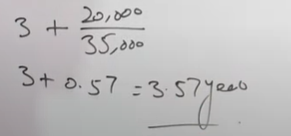 3 + 20,000/35,000
3 + 0.57 = 3.57 years